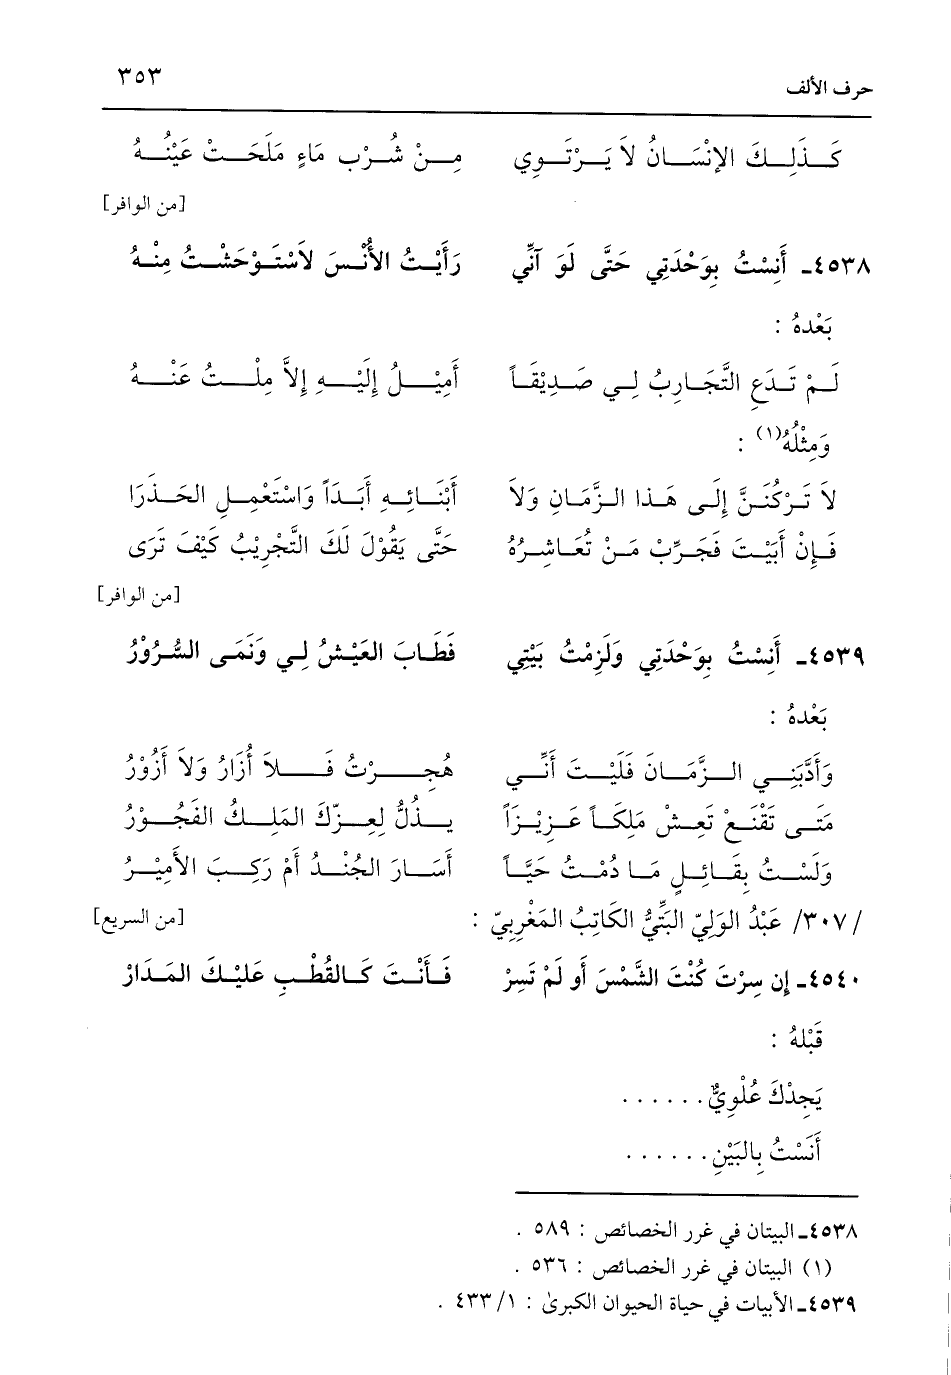 حرف الألف ٣٥٣
كَذَلِكَ الإنْسَانُ لاَ يَرْتَوِي مِنْ شُرْبِ مَاءٍ مَلَحَتْ عَيْنُهُ
[من الوافر]
٤٥٣٨ـ أَنِسْتُ بِوَحْدَتِي حَتَّى لَوَ آنِّي رَأَيْتُ الأُنْسَ لاَسْتَوْحَشْتُ مِنْهُ
بَعْدهُ :
لَمْ تَدَعِ التَّجَارِبُ لِي صَدِيْقَاً أَمِيْلُ إِلَيْهِ إِلاَّ مِلْتُ عَنْهُ
وَمِثْلُهُ(١) :
لاَ تَرْكُنَنَّ إِلَى هَذا الزَّمَانِ وَلاَ أَبْنَائِهِ أَبَدَاً وَاسْتَعْمِلِ الحَذَرَا
فَإِنْ أَبَيْتَ فَجَرِّبْ مَنْ تُعَاشِرُهُ حَتَّى يَقُوْلَ لَكَ التَّجْرِيْبُ كَيْفَ تَرَى
[من الوافر]
٤٥٣٩ـ أَنِسْتُ بِوَحْدَتِي وَلَزِمْتُ بَيْتِي فَطَابَ العَيْشُ لِي وَنَمَى السُّرُوْرُ
بَعْدهُ :
وَأَدَّبَنِي الزَّمَانُ فَلَيْتَ أَنِّي هُجِرْتُ فَلاَ أُزَارُ وَلاَ أَزُوْرُ
مَتَى تَقْنَعْ تَعِشْ مَلِكَاً عَزِيْزَاً يَذُلُّ لِعِزِّكَ المَلِكُ الفَجُوْرُ
وَلَسْتُ بِقَائِلٍ مَا دُمْتُ حَيَّاً أَسَارَ الجُنْدُ أَمْ رَكِبَ الأَمِيْرُ
/٣٠٧/ عَبْدُ الوَلِيّ البَنِّيُّ الكَاتِبُ المَغْرِبِيّ : [من السريع]
٤٥٤٠ـ إن سِرْتَ كُنْتَ الشَّمْسَ أَو لَمْ تَسِرْ فَأَنْتَ كَالقُطْبِ عَلَيْكَ المَدَارْ
قَبْلهُ :
يَجِدْكَ عُلْوِيٌّ . . . . . .
أَنَسْتُ بِالبَيْنِ . . . . . .
٤٥٣٨ـ البيتان في غرر الخصائص : ٥٨٩ .
(١) البيتان في غرر الخصائص : ٥٣٦ .
٤٥٣٩ـ الأبيات في حياة الحيوان الكبرىٰ : ١/ ٤٣٣ .